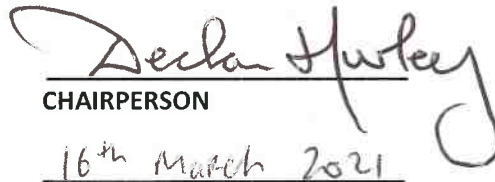 Declan Hurley
CHAIRPERSON
16th March 2021